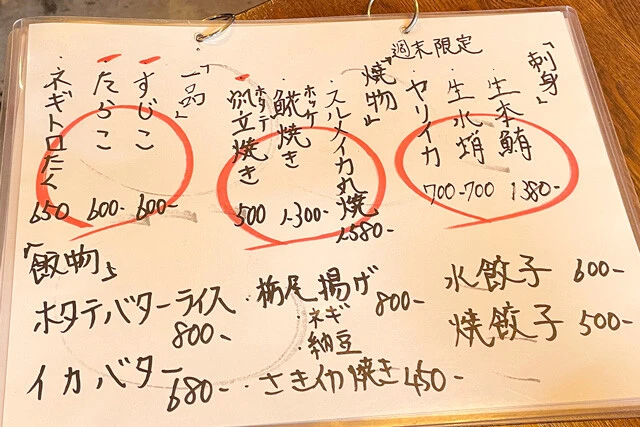 週末限定
「刺身」
・生本鮪 1380-
・生水蛸 700-
・ヤリイカ 700-
「焼物」
・スルメイカ丸焼 1580-
ホッケ
・鯱焼き 1300-
ホタテ
・帆立焼き 500
「一品」
・すじこ 600-
・たらこ 600-
・ネギトロたく 650
「飯物」
ホタテバターライス
800-
イカバター 680-
・栃尾揚げ
800-
・ネギ
・納豆
・さきイカ焼き 450-
水餃子 600-
焼餃子 500-